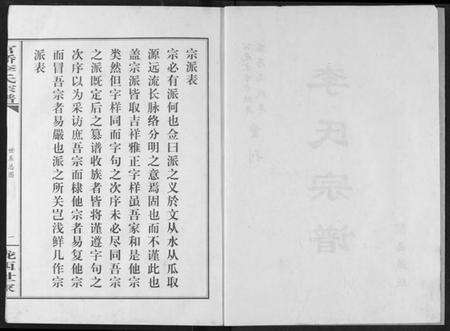 李氏宗谱
宗派表
宗必有派何也佥曰派之义於文从水从瓜取
源远流长脉络分明之意焉固也而不谨此也
盖宗派皆取吉祥雅正字样虽吾家和是他宗
类然但字样同而字句之次序未必尽同吾宗
之派既定后之篡谱收族者皆将谨遵字句之
次序以为采访庶吾宗而棣他宗者易复他宗
而冒吾宗者易严也派之所关岂浅鲜几作宗
派表